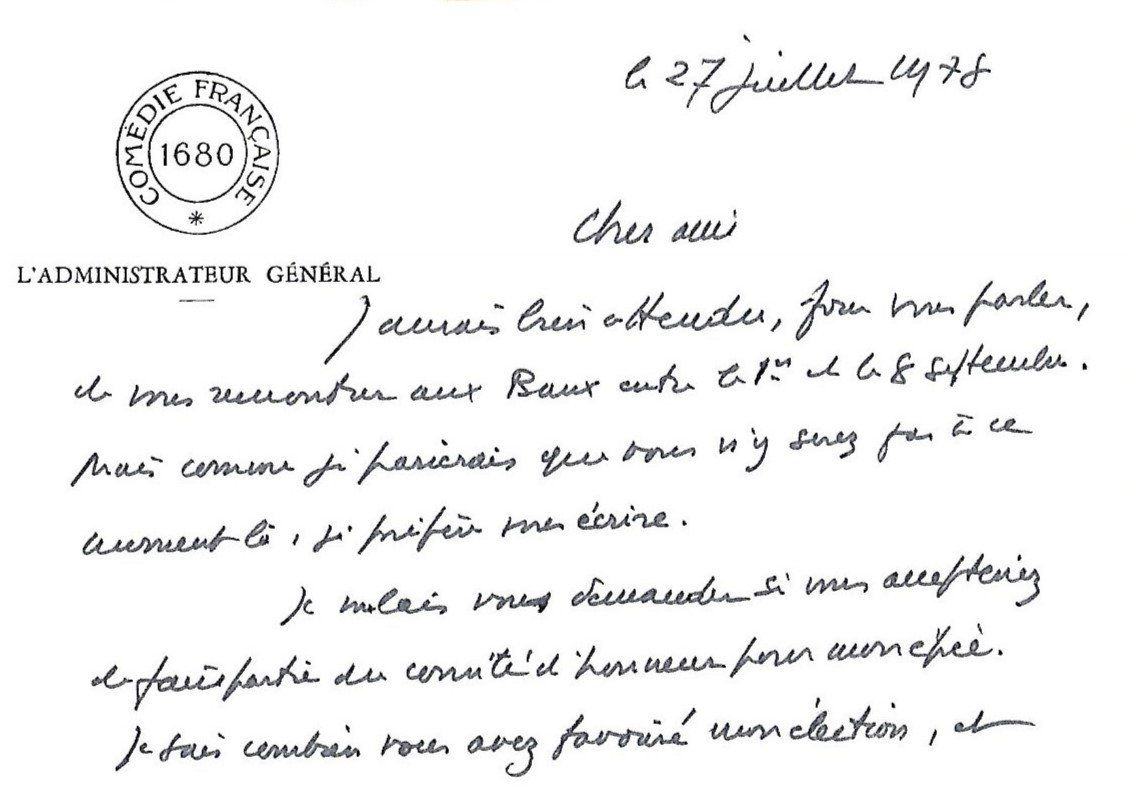 le 27 juillet 1978
COMÉDIE FRANÇAISE
1680
L'ADMINISTRATEUR GÉNÉRAL
Cher ami
J'aurais bien attendu, pour vous parler,
de vous rencontrer aux Baux entre le 1er et le 8 septembre.
Mais comme je parierais que vous n'y serez pas à ce
moment-là, je préfère vous écrire.
Je voulais vous demander si vous accepteriez
de faire partie du comité d'honneur pour mon épée.
Je sais combien vous avez favorisé mon élection, et